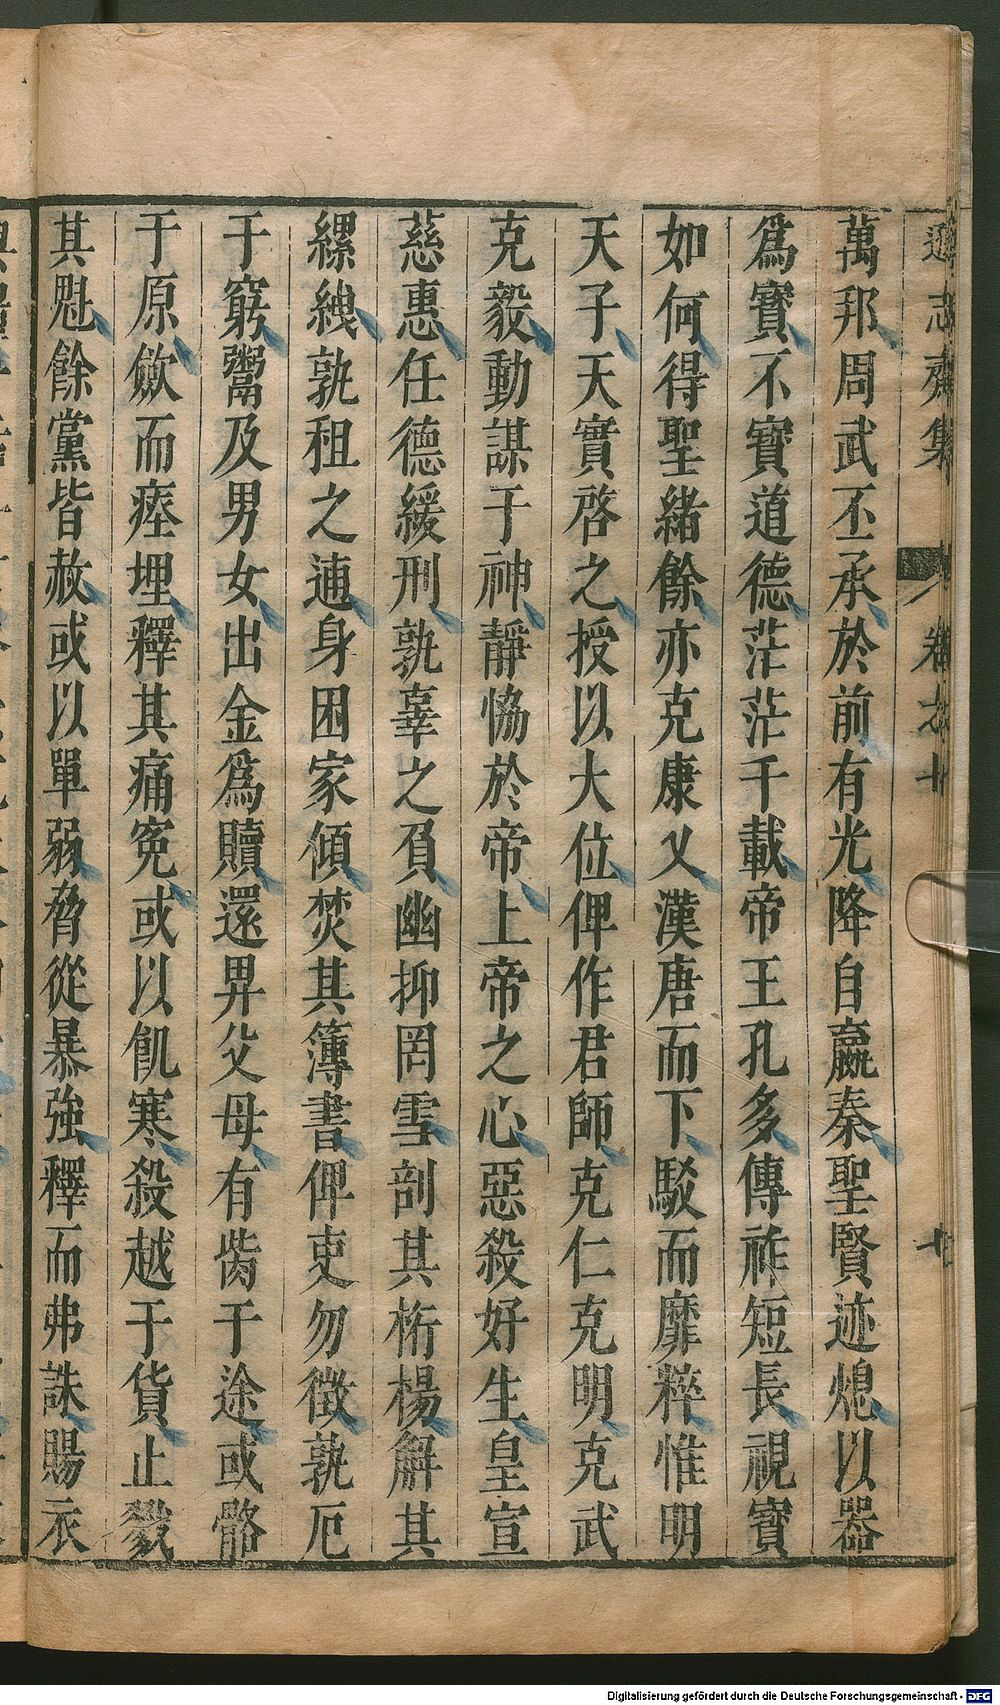 遜志齋集 卷之 七
萬邦周武丕承於前有光降自嬴秦聖賢迹熄以器
爲寶不寶道德茫茫千載帝王孔多傳祚短長視寶
如何得聖緒餘亦克康乂漢唐而下駁而靡粹惟明
天子天實啓之授以大位俾作君師克仁克明克武
克毅動謀于神靜恊於帝上帝之心惡殺好生皇宣
慈惠任德緩刑孰辜之負幽抑罔雪剖其桁楊解其
縲絏孰租之逋身困家傾焚其簿書俾吏勿徵孰厄
于窮鬻及男女出金爲贖還畀父母有胔于途或骼
于原歛而瘞埋釋其痛寃或以飢寒殺越于貨止戮
其魁餘黨皆赦或以單弱脅從暴強釋而弗誅賜衣
Digitalisierung gefördert durch die Deutsche Forschungsgemeinschaft - DFG